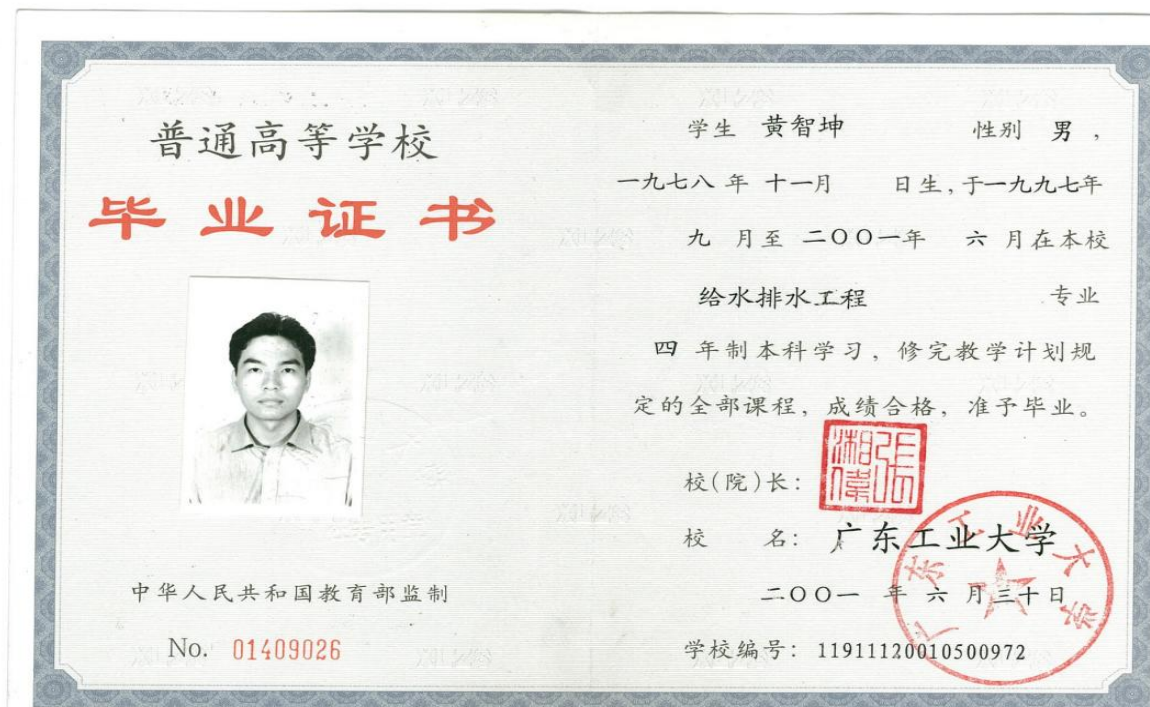 普通高等学校
毕业证书
中华人民共和国教育部监制
No. 01409026
学生 黄智坤 性别 男，
一九七八 年 十一月 日生，于一九九七年
九 月至 二〇〇一年 六 月在本校
给水排水工程 专业
四 年制本科学习，修完教学计划规
定的全部课程，成绩合格，准予毕业。
校(院)长：
張湘偉
校 名：广东工业大学
二〇〇一 年 六 月三十日
学校编号：11911120010500972
广东工业大学